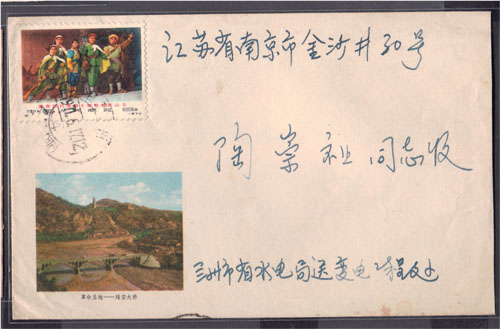 江苏省南京市金沙井30号
陶崇祖同志收
革命圣地——延安大桥
兰州市省水电局送变电工程处